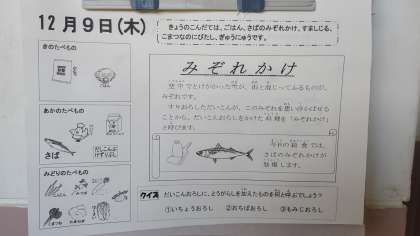 12月9日(木)
きょうのこんだては、ごはん、さばのみぞれかけ、すましじる、
こまつなのにびたし、ぎゅうにゅうです。
きのたべもの
みぞれかけ
空中でとけかかった雪が、雨と混じってふるものが、
みぞれです。
すりおろしただいこんが、このみぞれを思い浮かばせる
ことから、だいこんおろしをかけた料理を「みぞれかけ」
と呼びます。
あかのたべもの
さば
だしこんぶ
けずりぶし
今日の給食では、
さばのみぞれかけが
登場します。
みどりのたべもの
クイズ
だいこんおろしに、とうがらしを加えたものを何と呼ぶでしょう?
①いちょうおろし ②おちばおろし ③もみじおろし